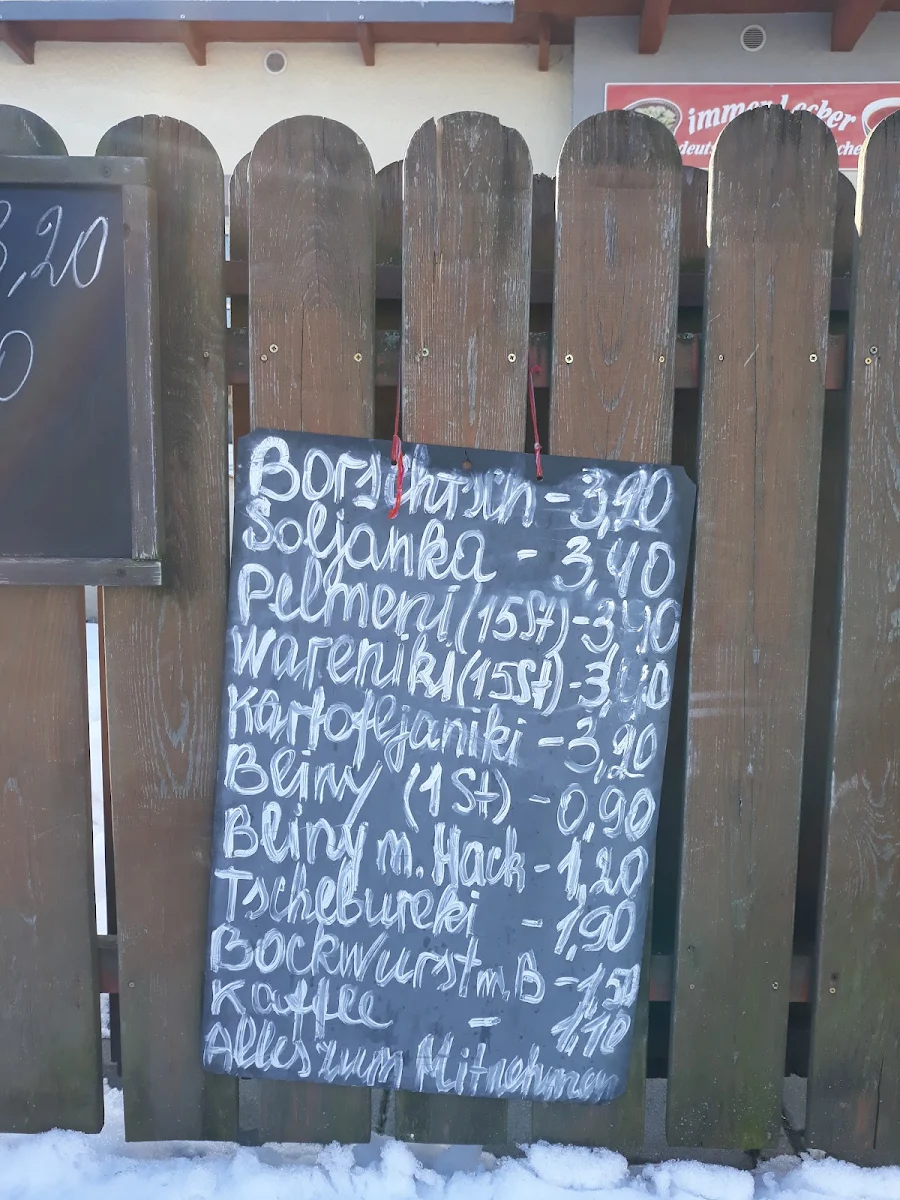 immer Lecker
3,20
0
Borschtsch - 3,20
Soljanka - 3,40
Pelmeni (15St) - 3,40
Wareniki (15St) - 3,40
Kartofljaniki - 3,20
Bliny (1 St) - 0,90
Bliny m. Hack - 1,20
Tschebureki - 1,90
Bockwurst m, B - 1,50
Kaffee - 1,10
Alles zum Mitnehmen